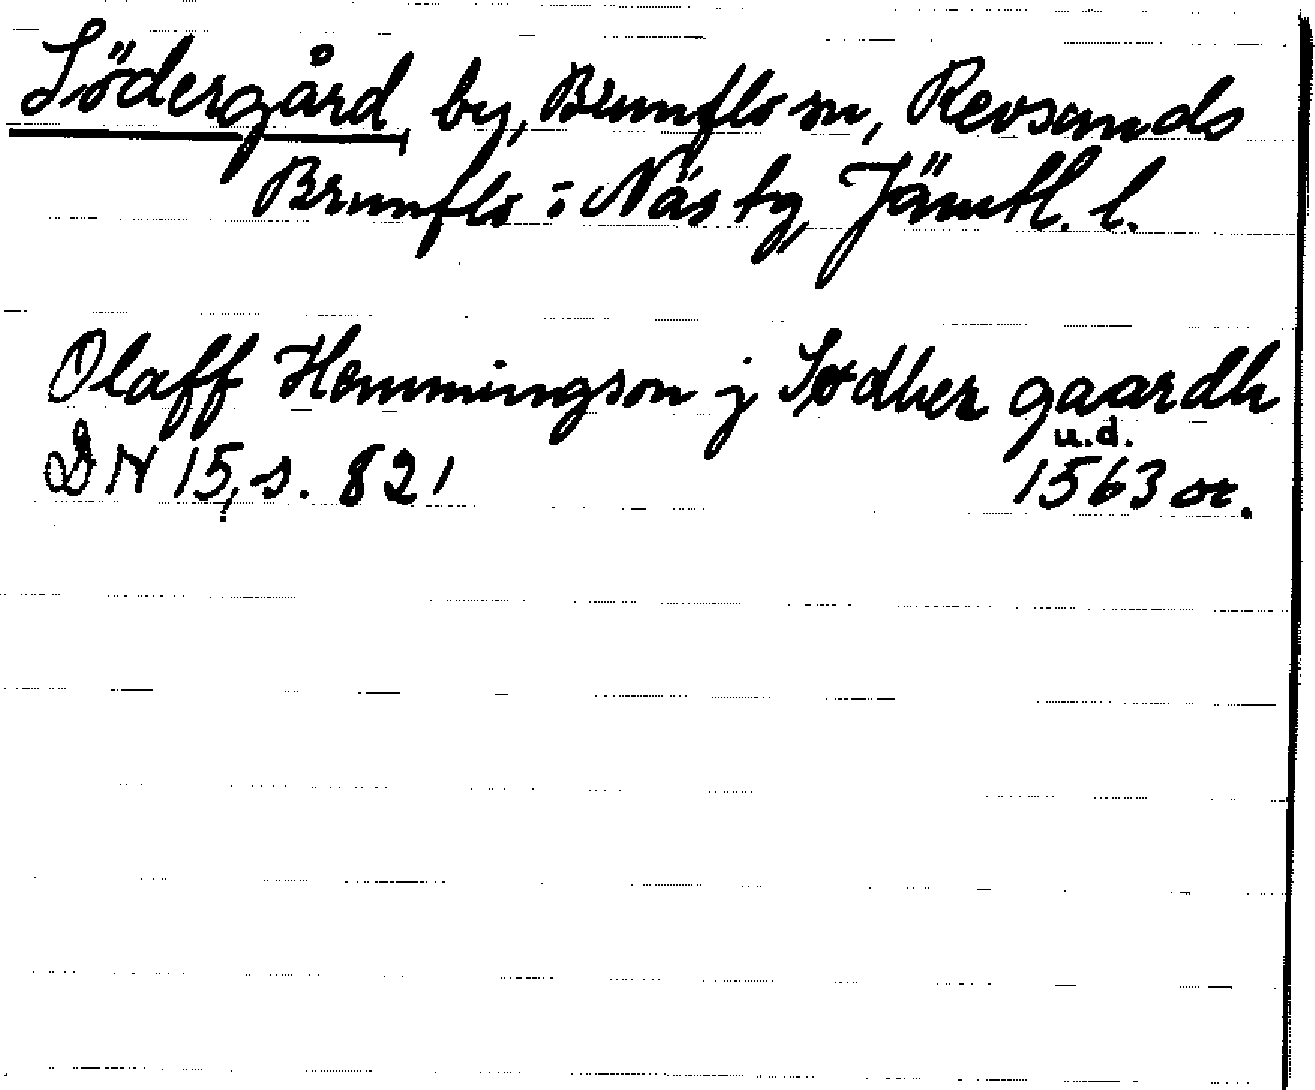 Södergård by, Brunflo sn, Revsunds
Brunflo o Näs tg, Jämtl. l.
Olaff Hemmingson j Sødher gaardh
u.d.
DN 15, s. 821 1563 or.